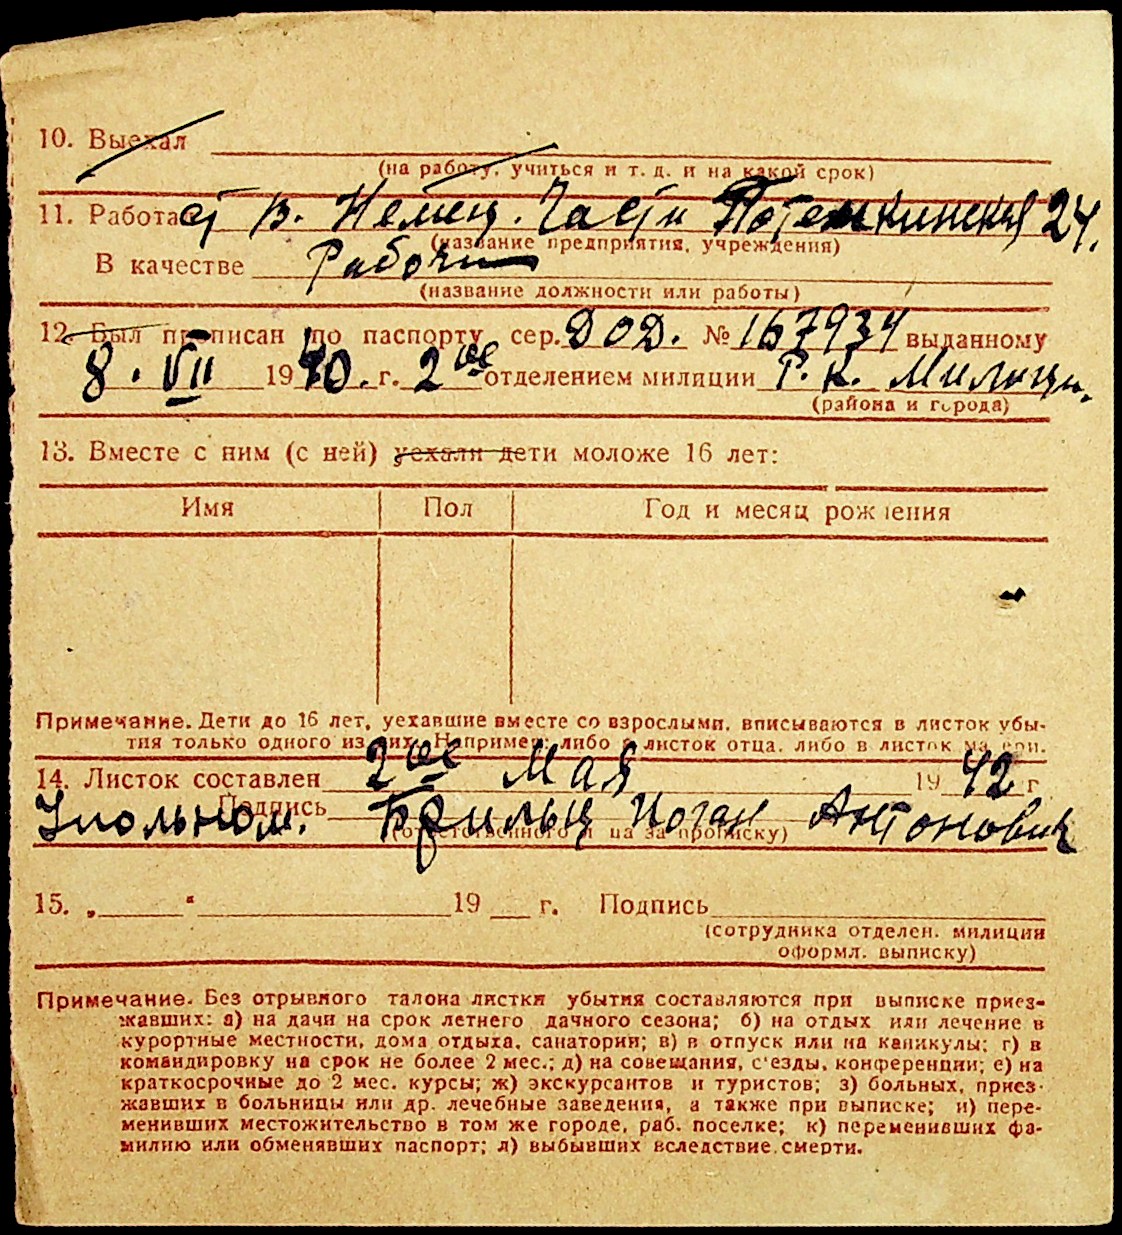 10. Выехал
(на работу, учиться и т. д. и на какой срок)
11. Работает в. Немец. Части Потемкинская 24.
(название предприятия, учреждения)
В качестве Рабочи
(название должности или работы)
12. Был прописан по паспорту сер. ДОД. № 167934 выданному
8. VII 1940. г. 2ое отделением милиции Р. К. Милиции.
(района и города)
13. Вместе с ним (с ней) уехали дети моложе 16 лет:
Имя Пол Год и месяц рождения
Примечание. Дети до 16 лет, уехавшие вместе со взрослыми, вписываются в листок убы-
тия только одного из них. Например: либо в листок отца, либо в листок матери.
14. Листок составлен 2ое Мая 1942 г
Подпись
Уполном. Иоган Антонович
(ответственного лица за прописку)
15. „ “ 19 г. Подпись
(сотрудника отделен. милиции
оформл. выписку)
Примечание. Без отрывного талона листки убытия составляются при выписке приез-
жавших: а) на дачи на срок летнего дачного сезона; б) на отдых или лечение в
курортные местности, дома отдыха, санатории; в) в отпуск или на каникулы; г) в
командировку на срок не более 2 мес.; д) на совещания, с'езды, конференции; е) на
краткосрочные до 2 мес. курсы; ж) экскурсантов и туристов; з) больных, приез-
жавших в больницы или др. лечебные заведения, а также при выписке; и) пере-
менивших местожительство в том же городе, раб. поселке; к) переменивших фа-
милию или обменявших паспорт; л) выбывших вследствие смерти.